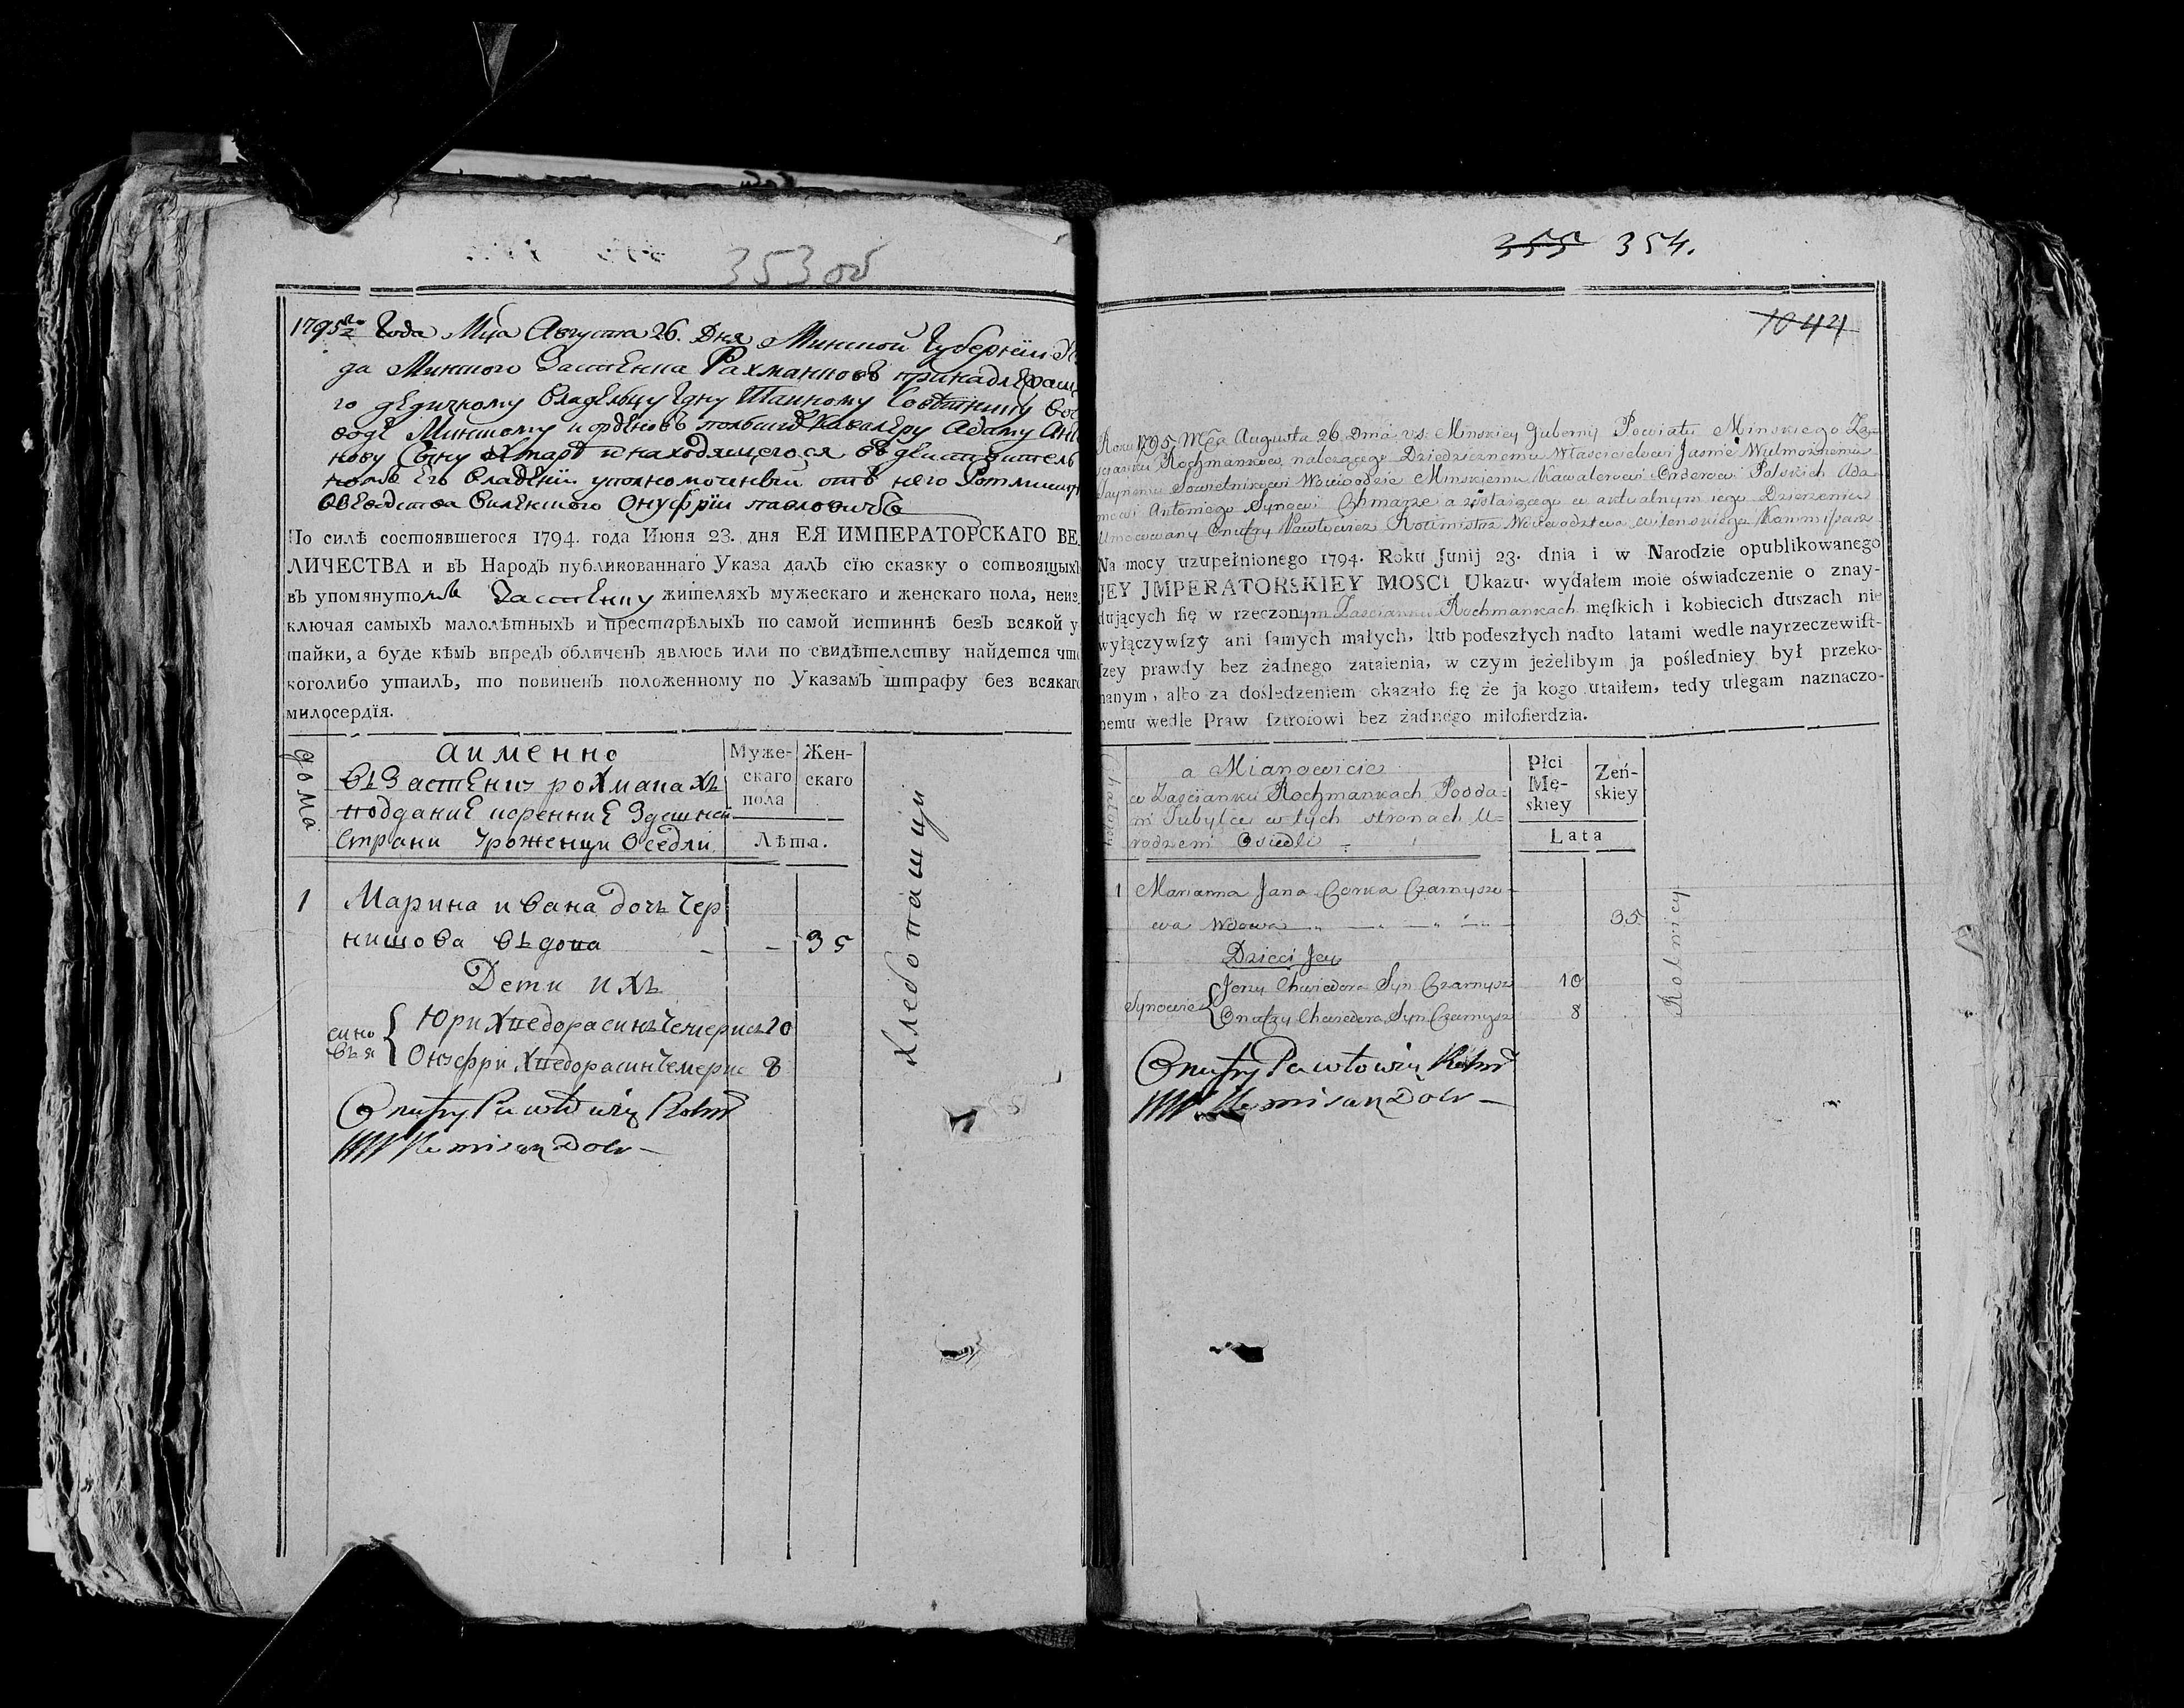 353 об
1795го Года Мца Августа 26. Дня Минской Губернїи
да Минского Застенка Рахманковъ принадлежаще
го дедичному Владельцу Гдну Тайному Советнику Вое
воде Минскому и орденовъ польскихъ Кавалеру Адаму Анто
нову Сыну Хмаре и находящегося въ действитель
номъ Его Владенїи уполномоченный отъ него Ротмистръ
Воеводства Виленского Онуфрїи павловичъ
По силѣ состоявшегося 1794. года Июня 23. дня ЕЯ ИМПЕРАТОРСКАГО ВЕ
ЛИЧЕСТВА и въ Народъ публикованнаго Указа далъ сїю сказку о сотвоящыхъ
въ упомянутомъ Застенку жителяхъ мужескаго и женскаго пола, неиз
ключая самыхъ малолѣтныхъ и престарѣлыхъ по самой истиннѣ безъ всякой у
тайки, а буде кѣмъ впредь обличенъ явлюсь или по свидѣтелству найдется что
коголибо утаилъ, то повиненъ положенному по Указамъ штрафу без всякаго
милосердїя.
дома
аименно
въ Застенку рохманахъ
подданиЕ корениЕ Здешней
Страни Уроженци Оседли
Муже-
скаго
пола
Жен-
скаго
Лѣта.
1 Марина ивана дочъ Чер
нишова въдова - - 35
Дети ихъ
сино
въя
Юри Хведора синъ Чемерисъ 10
Онуфри Хведора синъ Чемерис 8
Onufry Pawłowicz Rotmr
хлебопашци
355 354.
1044
Roku 1795 Mca Augusta 26 Dnia v.s. Minskiey Gubernij Powiatu Minskiego Za-
scianku Rochmankow należącego Dziedzicznemu Włascicielowi Jasnie Wielmożnemu
Taynemu Sowietnikowi Woiewodzie Minskiemu Kawalerowi Orderow Polskich Ada
mowi Antoniego Synowi Chmarze a zostaiącego w aktualnym iego Dzierżeniu
Umocowany Onufry Pawłowicz Rotmistrz Woiewodztwa wilenskiego Kommisarz
Na mocy uzupełnionego 1794. Roku Junij 23. dnia i w Narodzie opublikowanego
JEY JMPERATORSKIEY MOSCI Ukazu, wydałem moie oświadczenie o znay-
dujących się w rzeczonym Zascianku Rochmankach męſkich i kobiecich duszach nie
wyłączywſzy ani ſamych małych, lub podeszłych nadto latami wedle nayrzeczewiſt-
ſzey prawdy bez żadnego zataienia, w czym jeżelibym ja posledniey był przeko-
nanym, albo za dosledzeniem okazało ſię że ja kogo utaiłem, tedy ulegam naznaczo-
nemu wedle Praw ſztrofowi bez żadnego miłoſierdzia.
Chałupy
a Mianowicie
w Zascianku Rochmankach Podda-
ni Tubylce w tych stronach U-
rodzeni Osiedli
Płci
Mę-
skiey
Zeń-
skiey
Lata
1 Marianna Jana Corka Czarnyszo-
wa Wdowa 35
Dzieci Jey
Synowie
Jerzy Chwiedora Syn Czarnysz 10
Onufry Chwiedora Syn Czarnysz 8
Onufry Pawłowicz Rotmr
Rolnicy